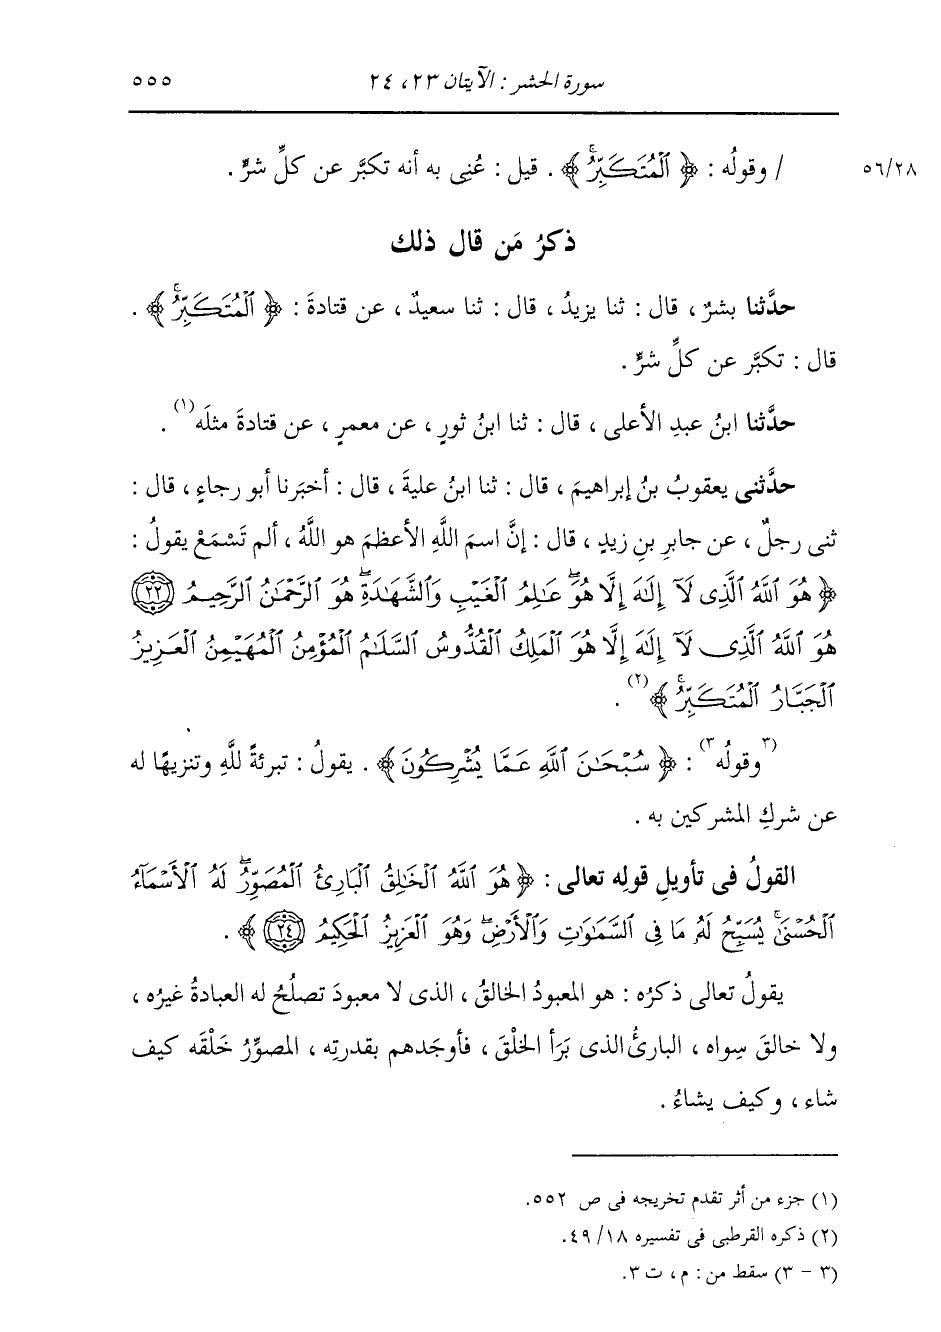 سورة الحشر : الآيتان ٢٣، ٢٤
٥٥٥
٥٦/٢٨
/ وقولُه : ﴿ ٱلْمُتَكَبِّرُ ﴾ . قيل : عُنِى به أنه تكبَّر عن كلِّ شرٍّ .
ذكرُ مَن قال ذلك
حدَّثنا بشرٌ ، قال : ثنا يزيدُ ، قال : ثنا سعيدٌ ، عن قتادةَ : ﴿ ٱلْمُتَكَبِّرُ ﴾ .
قال : تكبَّر عن كلِّ شرٍّ .
حدَّثنا ابنُ عبدِ الأعلى ، قال : ثنا ابنُ ثورٍ ، عن معمرٍ ، عن قتادةَ مثلَه (١) .
حدَّثنى يعقوبُ بنُ إبراهيمَ ، قال : ثنا ابنُ عليةَ ، قال : أخبَرنا أبو رجاءٍ ، قال :
ثنى رجلٌ ، عن جابرِ بنِ زيدٍ ، قال : إنَّ اسمَ اللَّهِ الأعظمَ هو اللَّهُ ، ألم تَسْمَعْ يقولُ :
﴿ هُوَ ٱللَّهُ ٱلَّذِى لَآ إِلَٰهَ إِلَّا هُوَۖ عَٰلِمُ ٱلْغَيْبِ وَٱلشَّهَٰدَةِۖ هُوَ ٱلرَّحْمَٰنُ ٱلرَّحِيمُ ٢٢
هُوَ ٱللَّهُ ٱلَّذِى لَآ إِلَٰهَ إِلَّا هُوَ ٱلْمَلِكُ ٱلْقُدُّوسُ ٱلسَّلَٰمُ ٱلْمُؤْمِنُ ٱلْمُهَيْمِنُ ٱلْعَزِيزُ
ٱلْجَبَّارُ ٱلْمُتَكَبِّرُۚ ﴾ (٢) .
(٣) وقولُه (٣) : ﴿ سُبْحَٰنَ ٱللَّهِ عَمَّا يُشْرِكُونَ ﴾ . يقولُ : تبرئةً للَّهِ وتنزيهًا له
عن شركِ المشركين به .
القولُ فى تأويلِ قولِه تعالى : ﴿ هُوَ ٱللَّهُ ٱلْخَٰلِقُ ٱلْبَارِئُ ٱلْمُصَوِّرُۖ لَهُ ٱلْأَسْمَآءُ
ٱلْحُسْنَىٰۚ يُسَبِّحُ لَهُۥ مَا فِى ٱلسَّمَٰوَٰتِ وَٱلْأَرْضِۖ وَهُوَ ٱلْعَزِيزُ ٱلْحَكِيمُ ٢٤ ﴾ .
يقولُ تعالى ذكرُه : هو المعبودُ الخالقُ ، الذى لا معبودَ تصلُحُ له العبادةُ غيرُه ،
ولا خالقَ سِواه ، البارئُ الذى بَرَأ الخلْقَ ، فأوجَدهم بقدرتِه ، المصوِّرُ خَلْقَه كيف
شاء ، وكيف يشاءُ .
(١) جزء من أثر تقدم تخريجه فى ص ٥٥٢.
(٢) ذكره القرطبى فى تفسيره ١٨/ ٤٩.
(٣ - ٣) سقط من : م ، ت ٣.